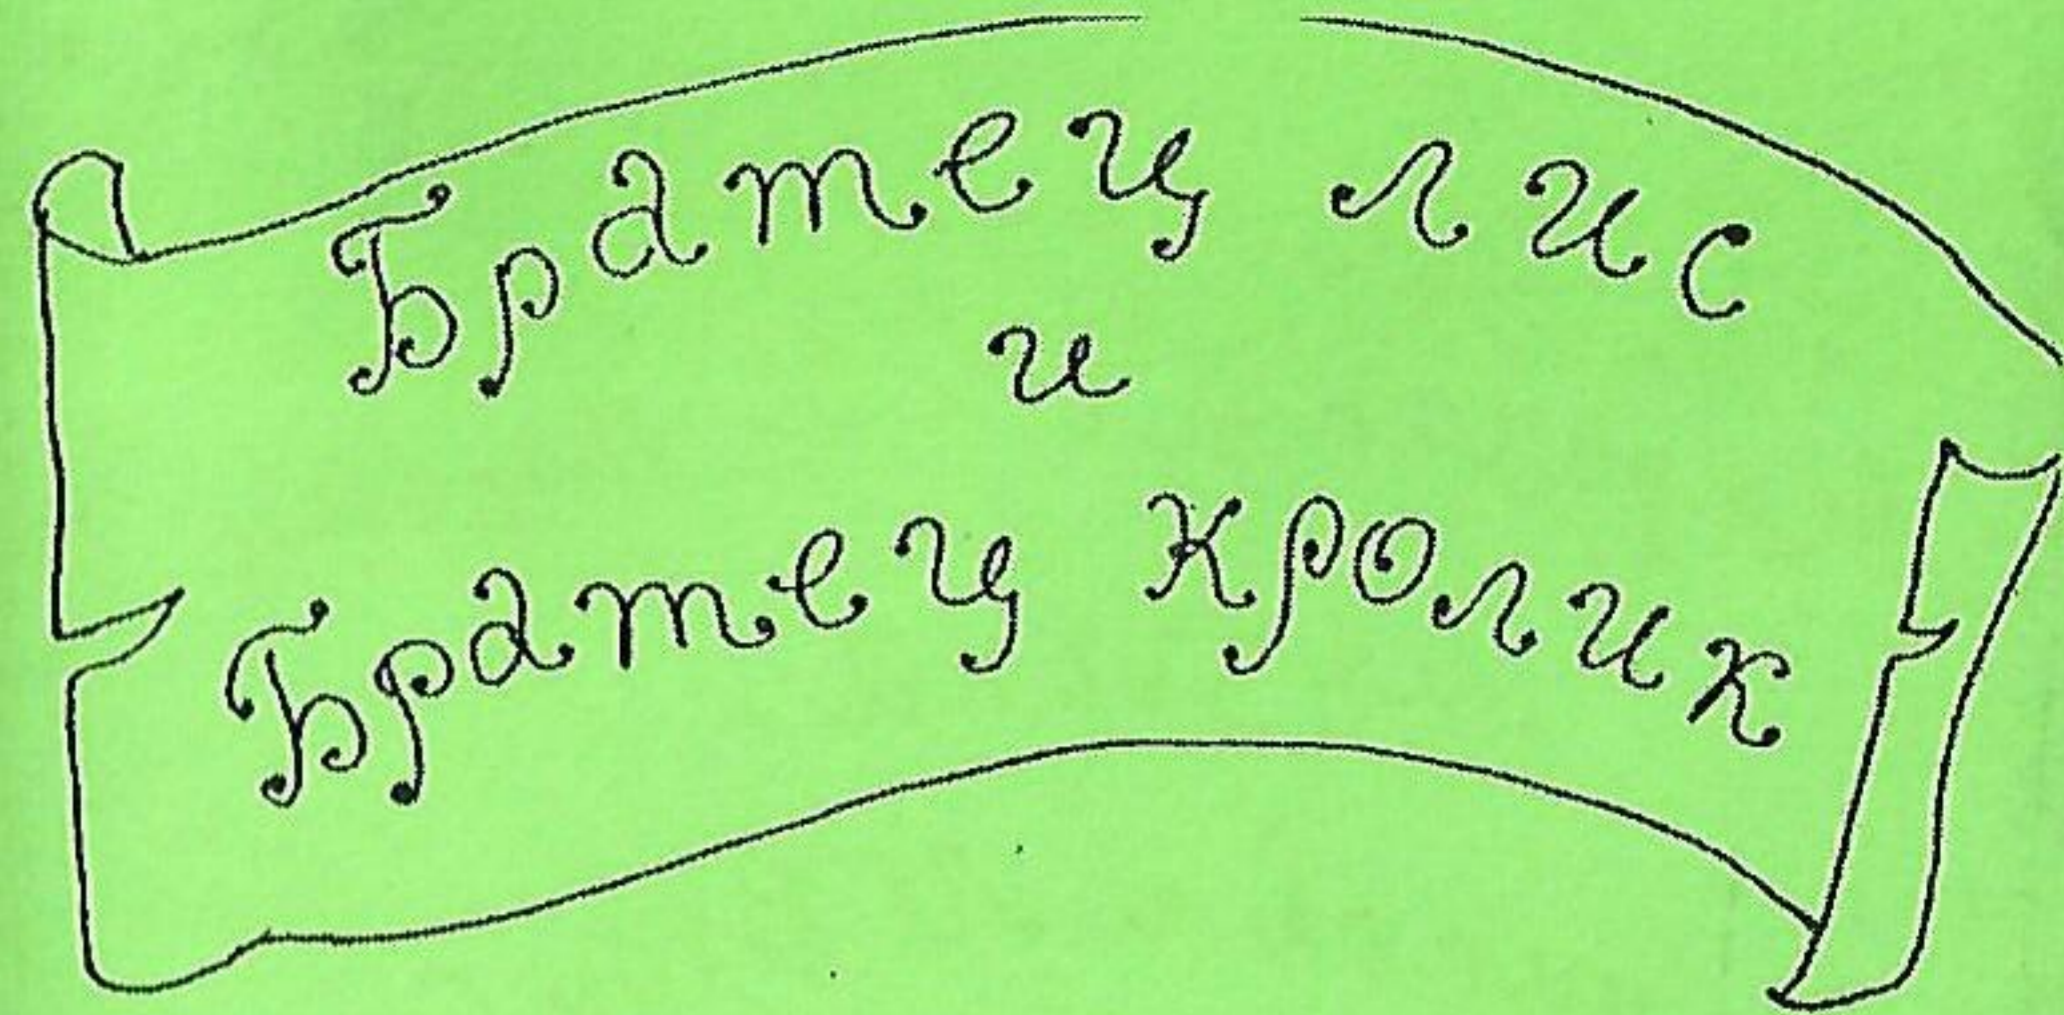 Братец лис
и
Братец кролик